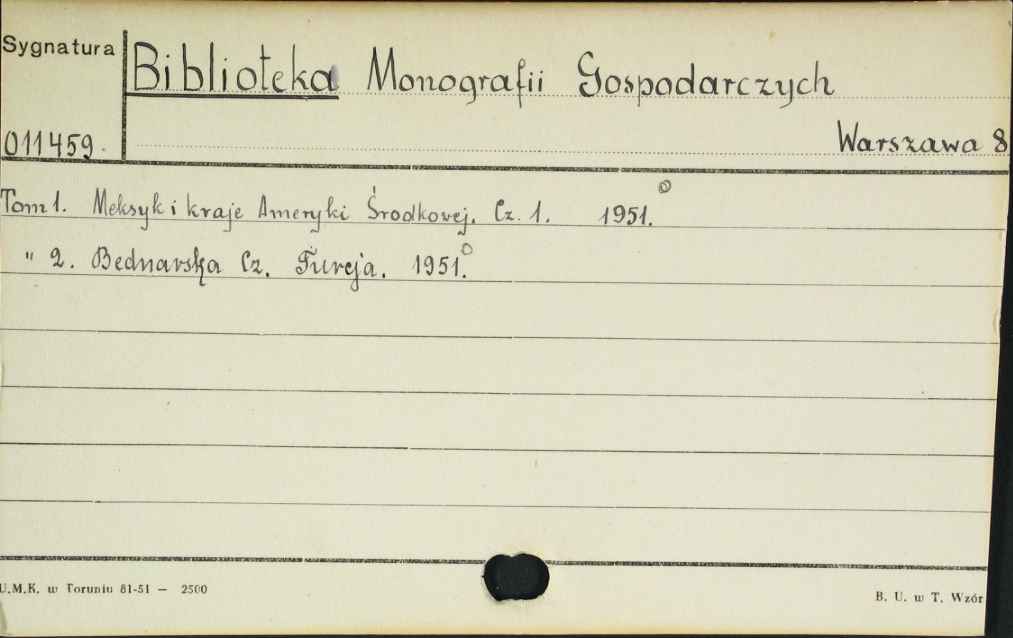 Sygnatura
Biblioteka Monografii Gospodarczych
011459.
Warszawa 8
Tom 1. Meksyk i kraje Ameryki Środkowej. Cz. 1. 1951.
" 2. Bednarska Cz. Turcja. 1951.
U.M.K. w Toruniu 81-51 — 2500
B. U. w T. Wzór